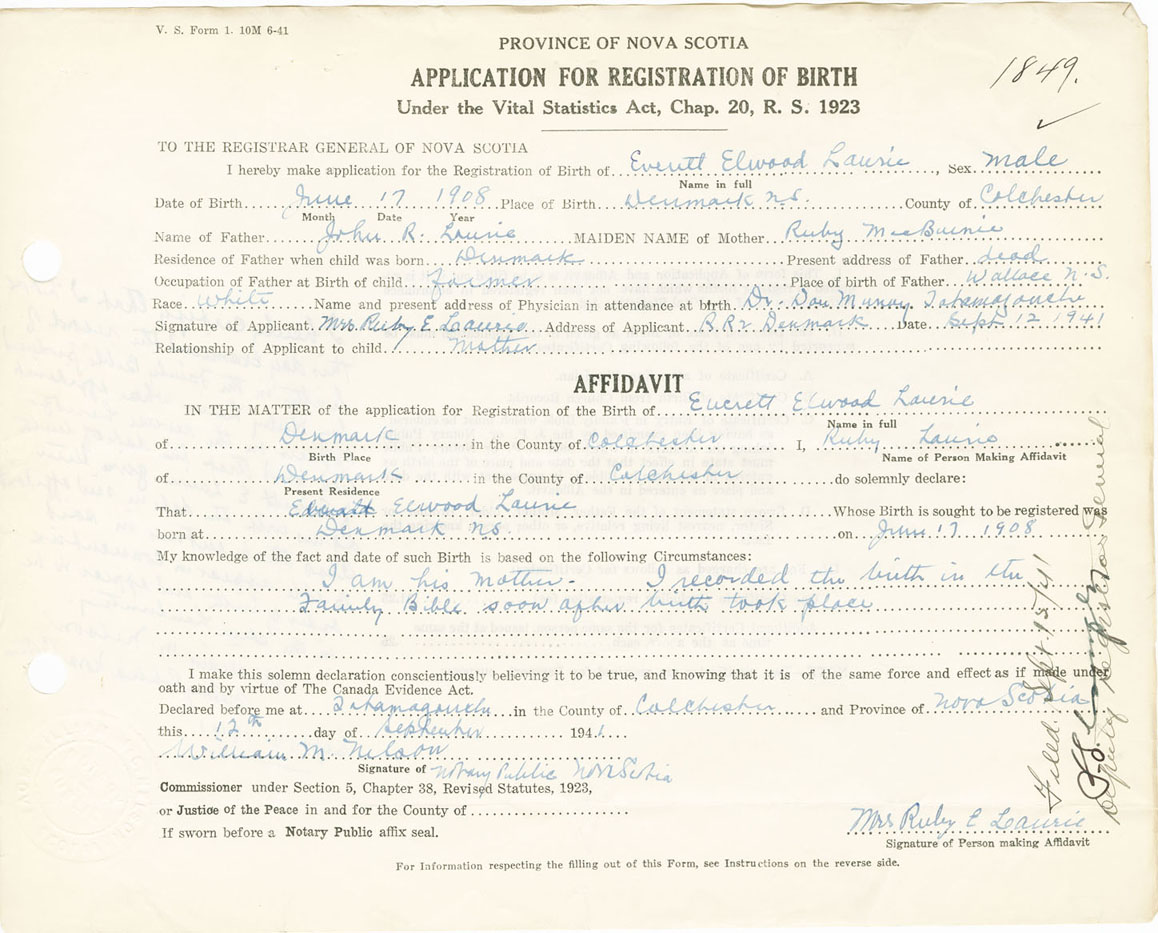 V. S. Form 1. 10M 6-41
PROVINCE OF NOVA SCOTIA
1849.
APPLICATION FOR REGISTRATION OF BIRTH
Under the Vital Statistics Act, Chap. 20, R. S. 1923
TO THE REGISTRAR GENERAL OF NOVA SCOTIA
I hereby make application for the Registration of Birth of Everett Elwood Laurie, Sex Male
Name in full
Date of Birth June 17 1908 Place of Birth Denmark N.S. County of Colchester
Month Date Year
Name of Father John R. Laurie MAIDEN NAME of Mother Ruby MacBurnie
Residence of Father when child was born Denmark Present address of Father dead
Occupation of Father at Birth of child farmer Place of birth of Father Wallace N.S.
Race White Name and present address of Physician in attendance at birth Dr. Dan Murray Tatamagouche
Signature of Applicant Mrs Ruby E Laurie Address of Applicant R.R 2 Denmark Date Sept 12 1941
Relationship of Applicant to child Mother
AFFIDAVIT
IN THE MATTER of the application for Registration of the Birth of Everett Elwood Laurie
Name in full
of Denmark in the County of Colchester I, Ruby Laurie
Birth Place Name of Person Making Affidavit
of Denmark in the County of Colchester do solemnly declare:
Present Residence
That Elwood Laurie Whose Birth is sought to be registered was
born at Denmark N.S. on June 17 1908
My knowledge of the fact and date of such Birth is based on the following Circumstances:
I am his Mother - I recorded the birth in the
Family Bible soon after birth took place
I make this solemn declaration conscientiously believing it to be true, and knowing that it is of the same force and effect as if made under
oath and by virtue of The Canada Evidence Act.
Declared before me at Tatamagouche in the County of Colchester and Province of Nova Scotia
this 12th day of September 1941
William M. Nelson
Signature of Notary Public Nova Scotia
Commissioner under Section 5, Chapter 38, Revised Statutes, 1923,
or Justice of the Peace in and for the County of
If sworn before a Notary Public affix seal.
Mrs Ruby E Laurie
Signature of Person making Affidavit
For Information respecting the filling out of this Form, see Instructions on the reverse side.
Filed. Sept 15/41
Deputy Registrar General